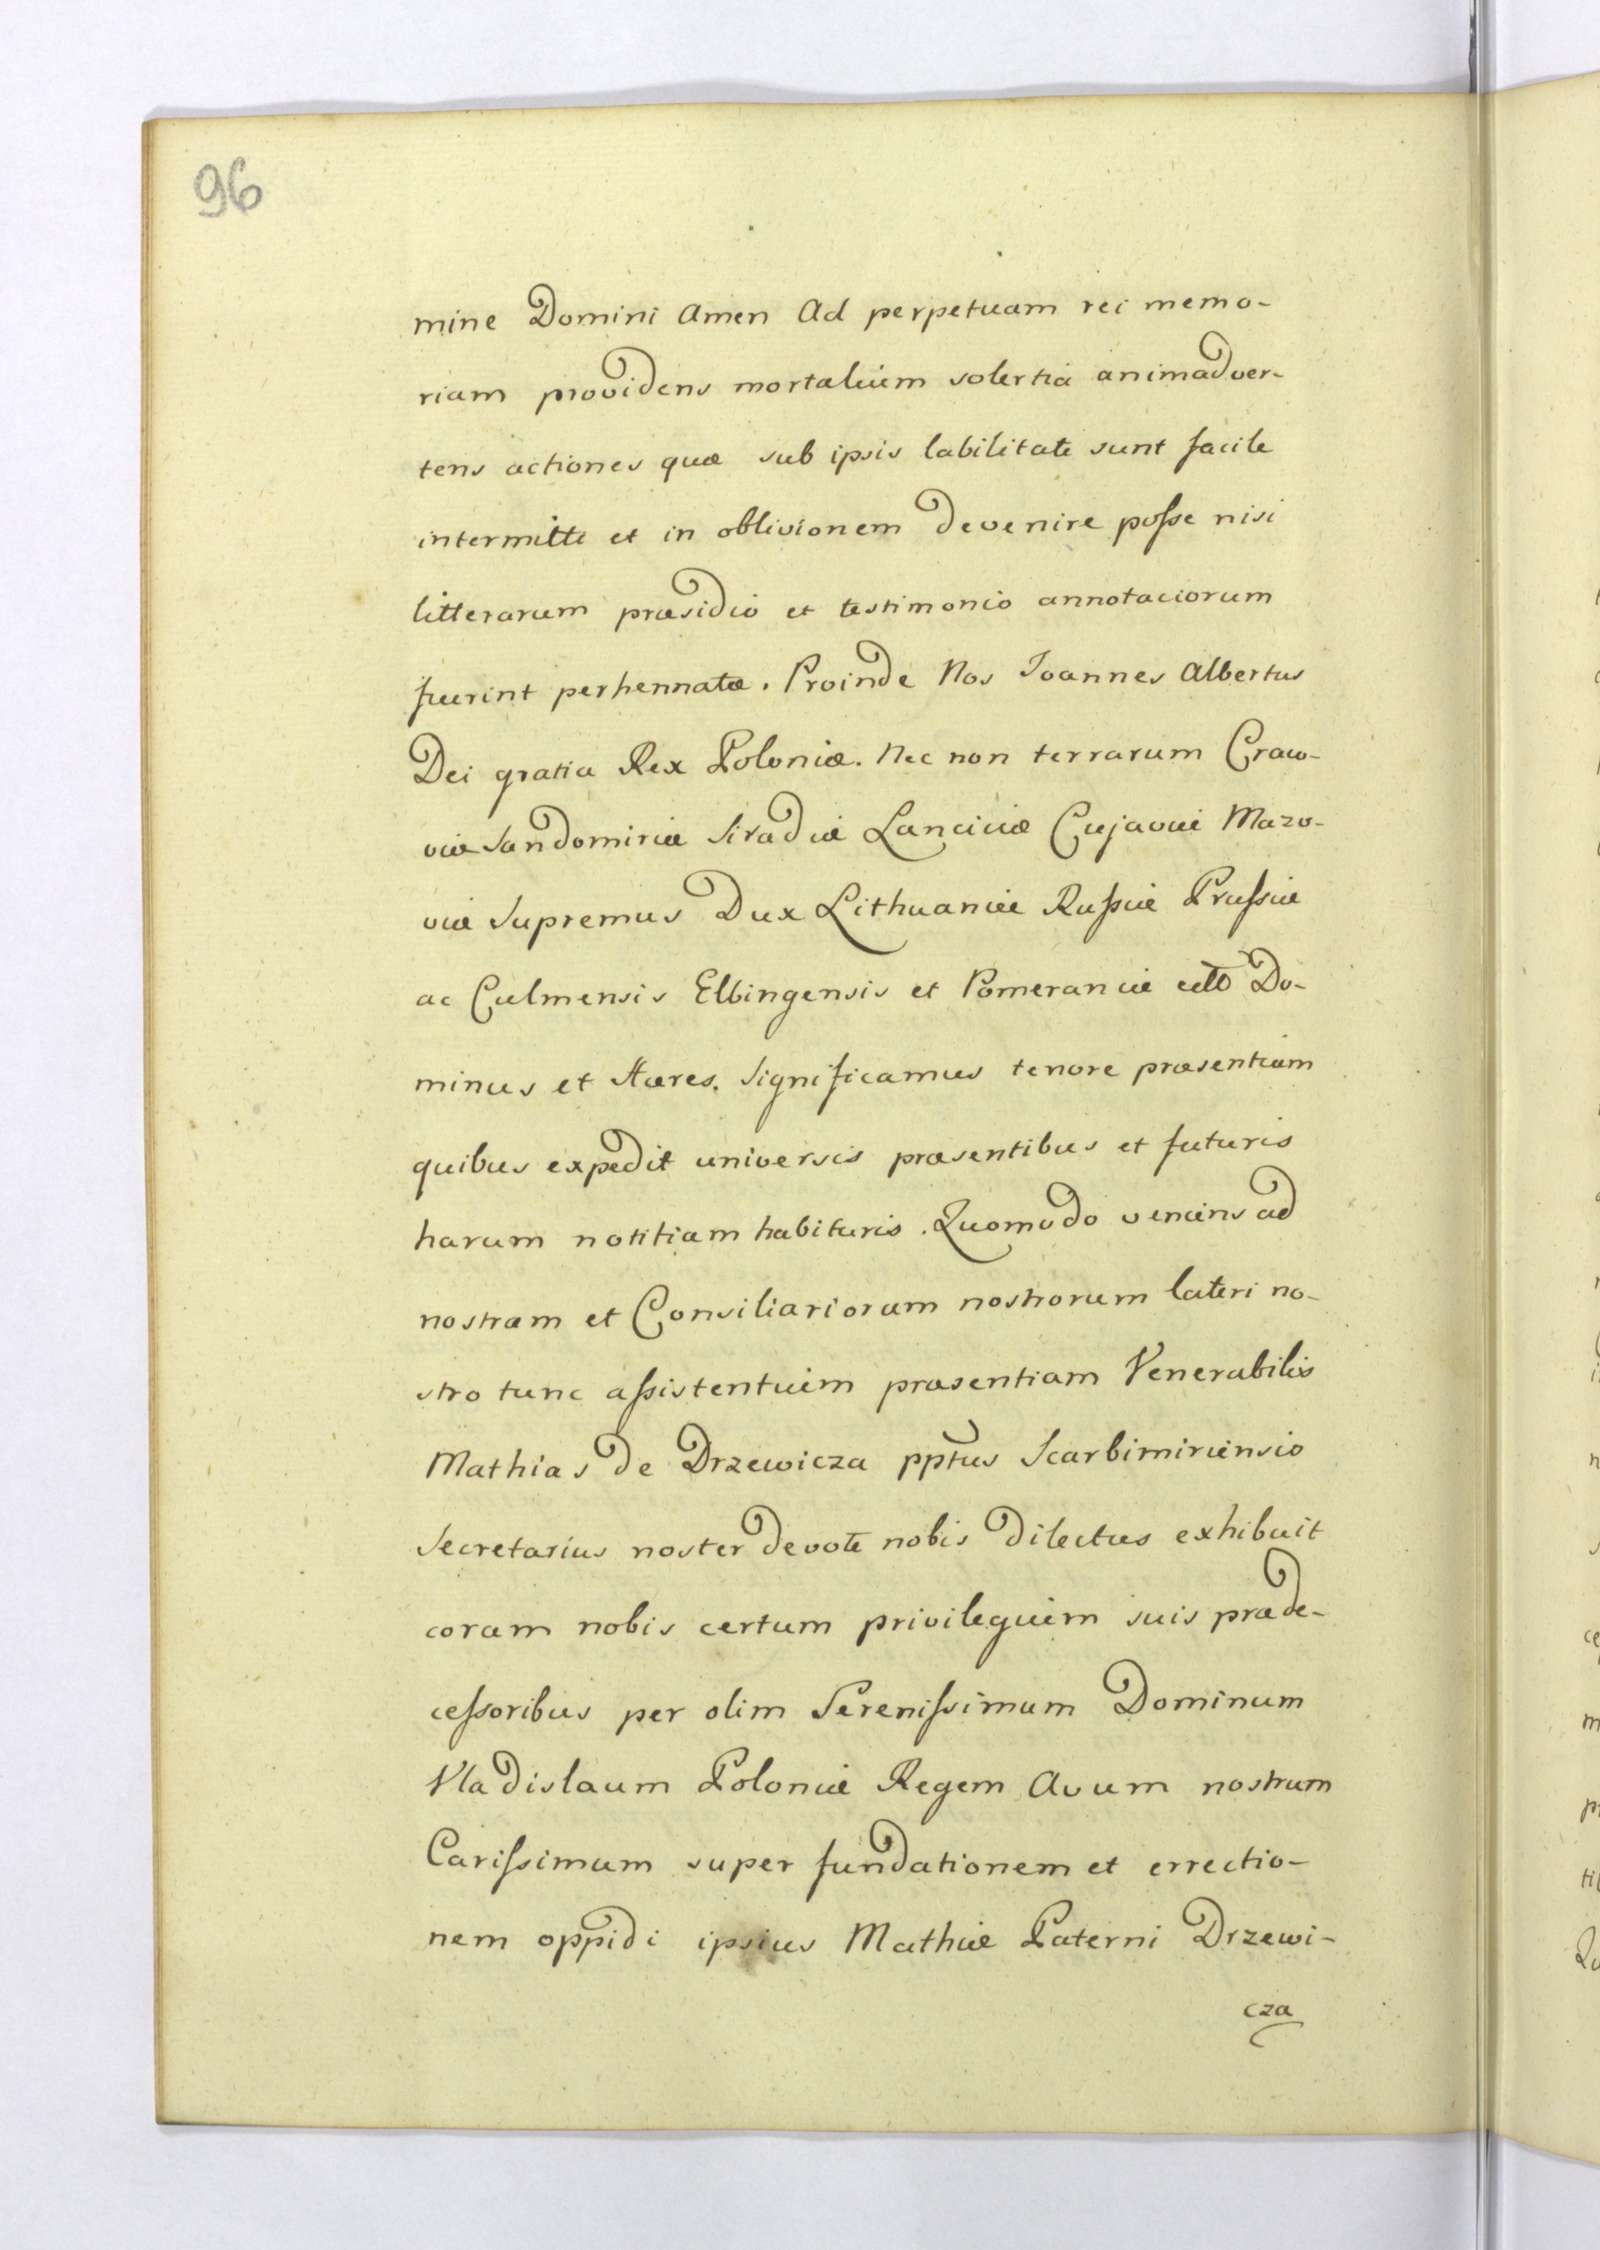 96
mine Domini Amen Ad perpetuam rei memo-
riam providens mortalium solertia animadver-
tens actiones quæ sub ipsis labilitate sunt facile
intermitti et in oblivionem devenire poſse nisi
litterarum præsidio et testimonio annotaciorum
fuerint perhennatæ. Proinde Nos Joannes Albertus
Dei gratia Rex Poloniæ. Nec non terrarum Craco-
viæ Sandomiriæ Siradiæ Lanciciæ Cujaviæ Mazo-
viæ Supremus Dux Lithuaniæ Ruſsiæ Pruſsiæ
ac Culmensis Elbingensis et Pomeraniæ Do-
minus et Hæres. Significamus tenore præsentium
quibus expedit universis præsentibus et futuris
harum notitiam habituris. Quomodo veniens ad
nostram et Consiliariorum nostrorum lateri no-
stro tunc aſsistentium præsentiam Venerabilis
Mathias de Drzewicza pptus Scarbimiriensis
Secretarius noster devote nobis dilectus exhibuit
coram nobis certum privilegium suis præde-
ceſsoribus per olim Sereniſsimum Dominum
Vladislaum Poloniæ Regem Avum nostrum
Cariſsimum super fundationem et errectio-
nem oppidi ipsius Mathiæ Paterni Drzewi-
cza